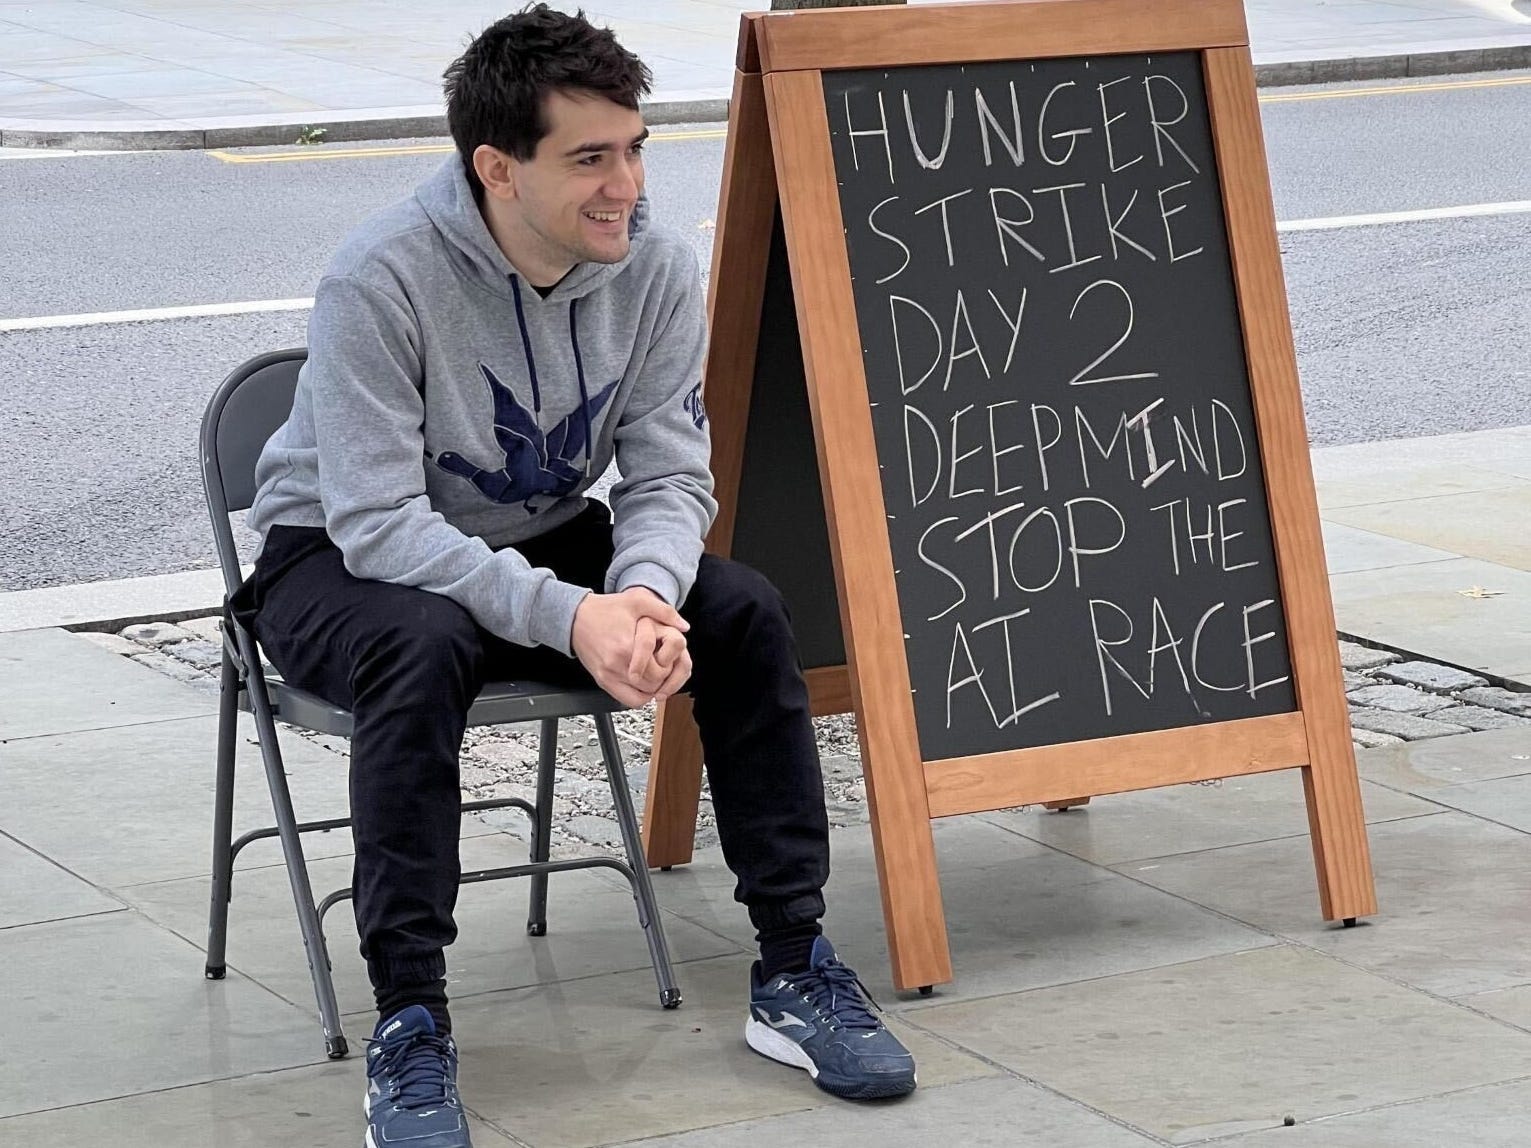 HUNGER
STRIKE
DAY 2
DEEPMIND
STOP THE
AI RACE